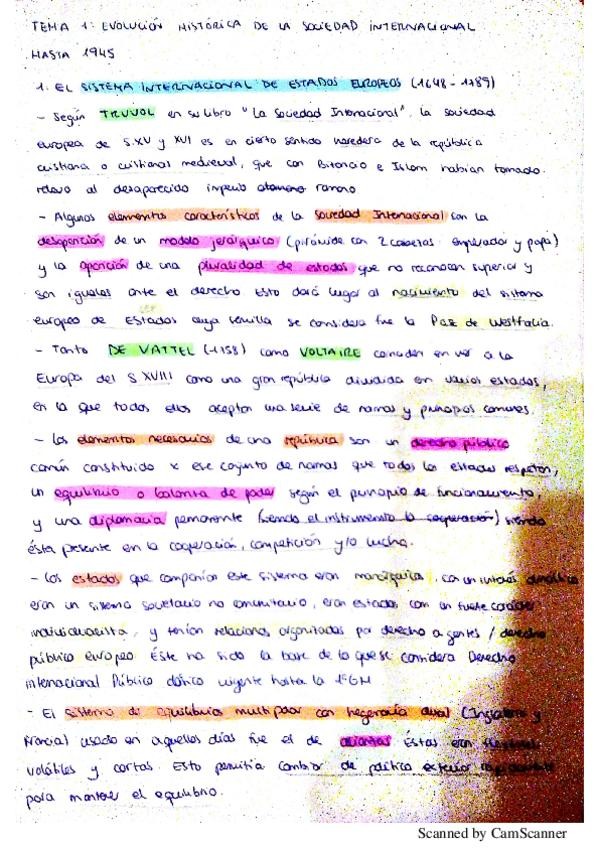 TEMA 1: EVOLUCIÓN HISTÓRICA DE LA SOCIEDAD INTERNACIONAL
HASTA 1945
1. EL SISTEMA INTERNACIONAL DE ESTADOS EUROPEOS (1648-1789)
- Según TRUYOL en su libro "La Sociedad Internacional", la sociedad
europea de S.XV y XVI es en cierto sentido heredera de la república
cristiana o cristiandad medieval, que con Bizancio e Islam habían tomado
relevo al desaparecido imperio romano
- Algunos elementos característicos de la Sociedad Internacional son la
desaparición de un modelo jerárquico (pirámide con 2 cabezas: emperador y papa)
y la aparición de una pluralidad de estados que no reconocen superior y
son iguales ante el derecho. Esto dará lugar al nacimiento del sistema
europeo de Estados cuya semilla se considera fue la Paz de Westfalia.
- Tanto DE VATTEL (1758) como VOLTAIRE coinciden en ver a la
Europa del S XVIII como una gran república dividida en varios estados,
en la que todos ellos aceptan una serie de normas y principios comunes.
- Los elementos necesarios de una república son un derecho público
común constituido x ese conjunto de normas que todos los estados respetan,
un equilibrio o balanza de poder según el principio de funcionamiento,
y una diplomacia permanente (siendo el instrumento la cooperación) siendo
ésta presente en la cooperación, competición y/o lucha.
- Los estados que componían este sistema eran monarquías, con un interés
eran un sistema societario no comunitario, eran estados con un fuerte carácter
individualista, y tenían relaciones organizadas por derecho a gentes / derecho
público europeo. Éste ha sido la base de lo que se considera Derecho
internacional Público clásico vigente hasta la 1ªGM
- El sistema de equilibrios multipolar con hegemonía dual (Inglaterra y
Francia) usado en aquellos días fue el de alianzas. Éstas eran flexibles,
volátiles y cortas. Esto permitía cambiar de política exterior rápidamente
para mantener el equilibrio.
Scanned by CamScanner